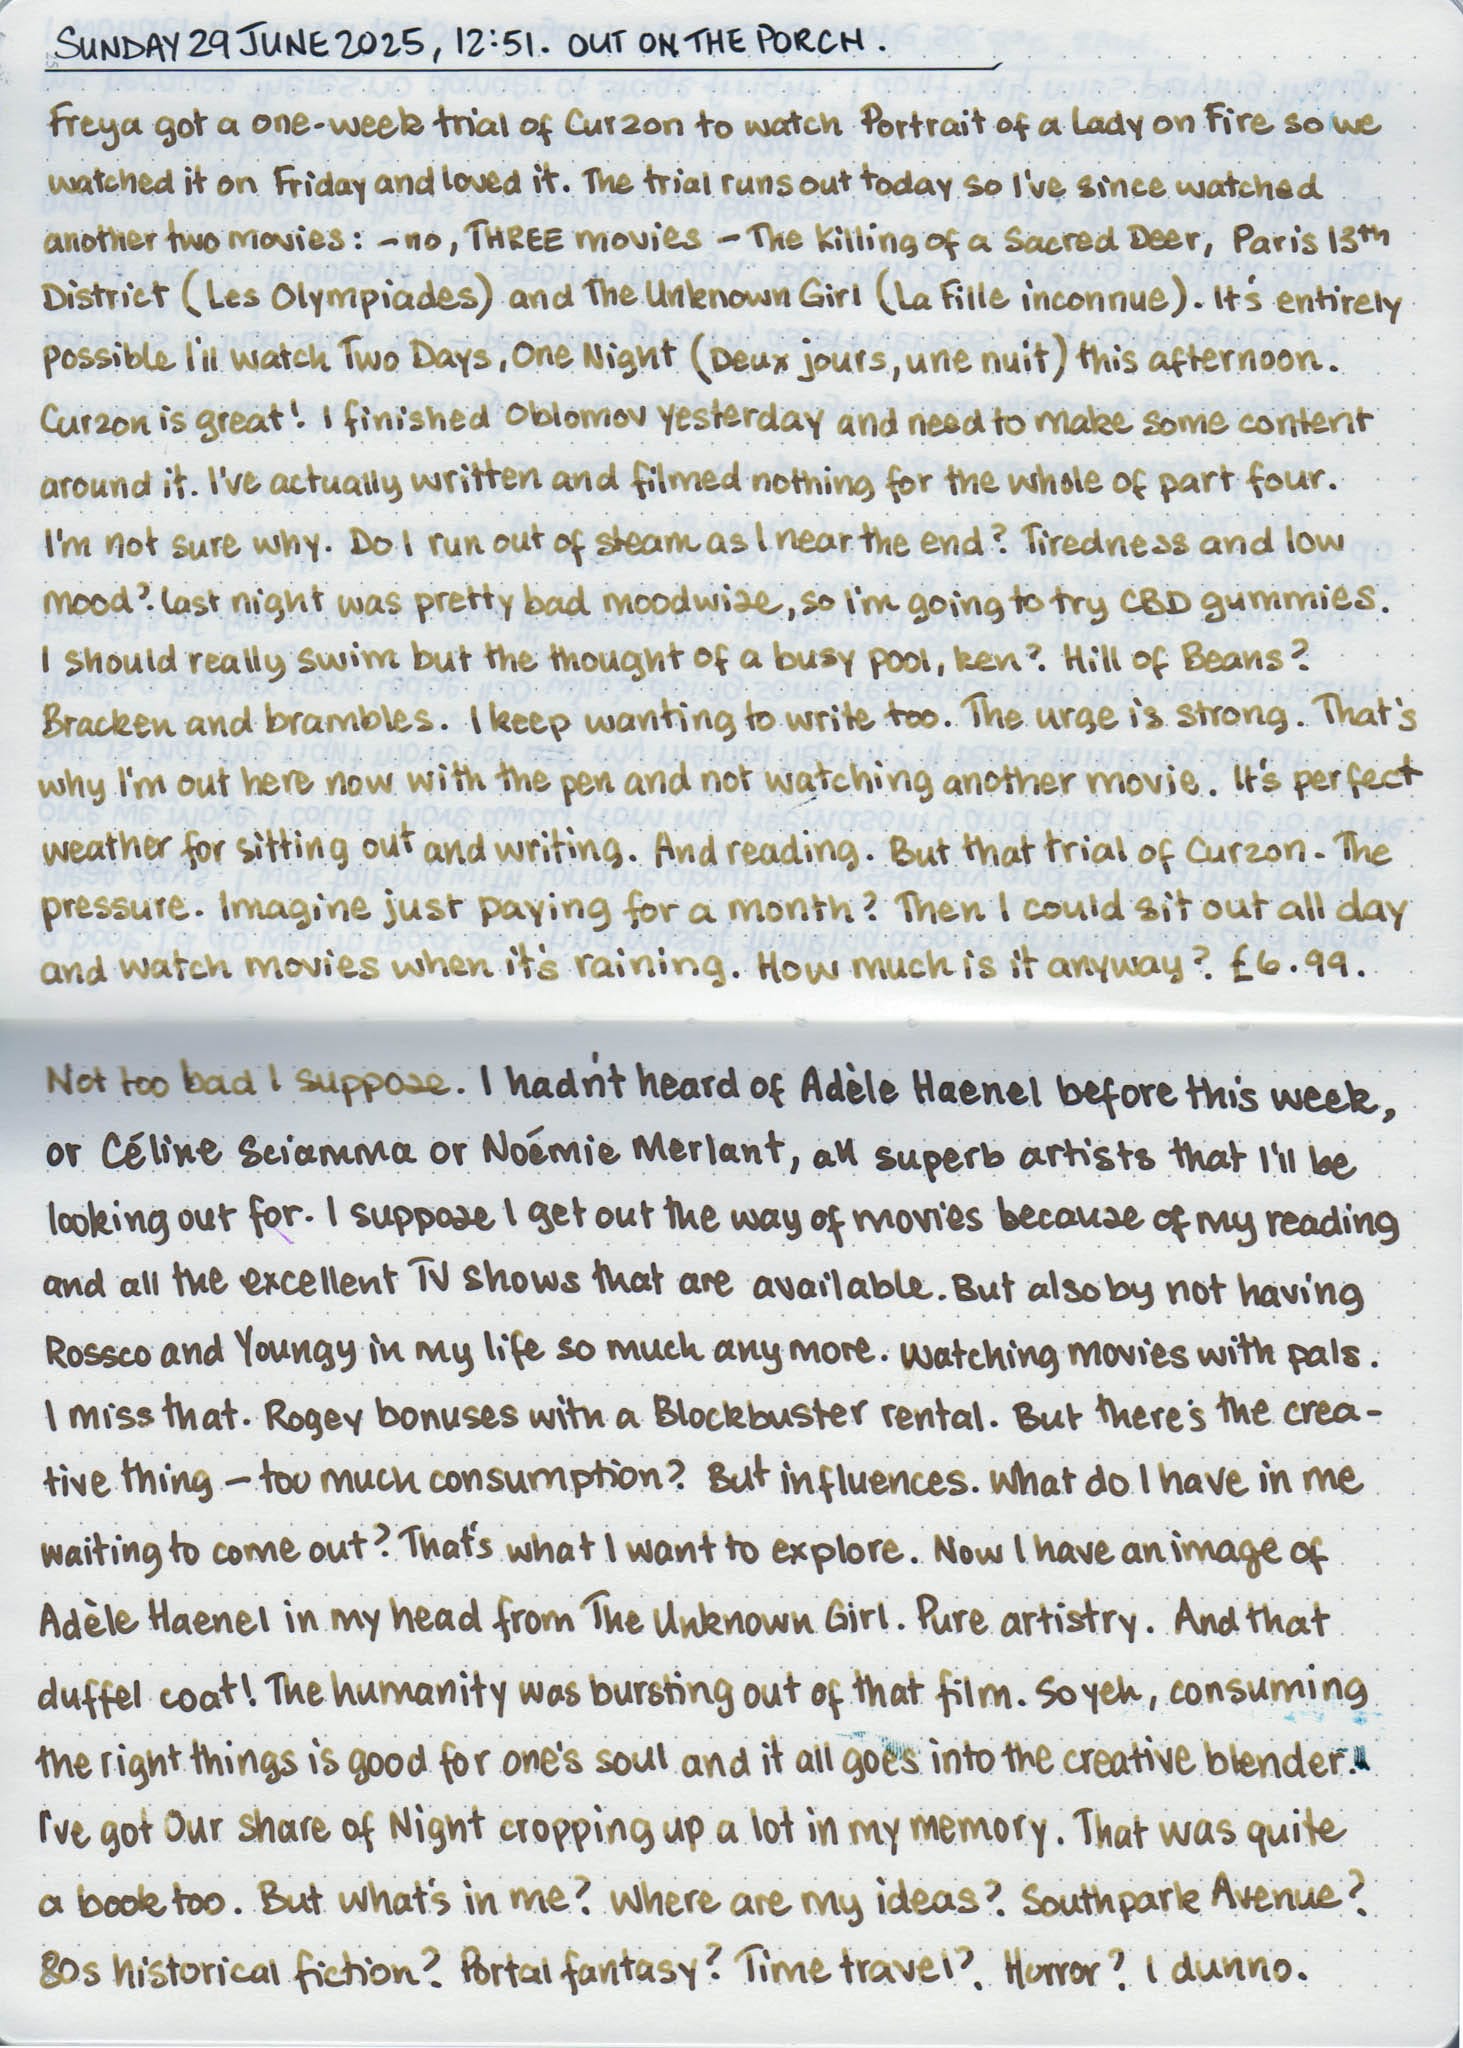 SUNDAY 29 JUNE 2025, 12:51. OUT ON THE PORCH.
Freya got a one-week trial of Curzon to watch Portrait of a Lady on Fire so we
watched it on Friday and loved it. The trial runs out today so I've since watched
another two movies: – no, THREE movies – The Killing of a Sacred Deer, Paris 13th
District (Les Olympiades) and The Unknown Girl (La Fille inconnue). It's entirely
possible I'll watch Two Days, One Night (Deux jours, une nuit) this afternoon.
Curzon is great! I finished Oblomov yesterday and need to make some content
around it. I've actually written and filmed nothing for the whole of part four.
I'm not sure why. Do I run out of steam as I near the end? Tiredness and low
mood? Last night was pretty bad moodwise, so I'm going to try CBD gummies.
I should really swim but the thought of a busy pool, ken? Hill of Beans?
Bracken and brambles. I keep wanting to write too. The urge is strong. That's
why I'm out here now with the pen and not watching another movie. It's perfect
weather for sitting out and writing. And reading. But that trial of Curzon - The
pressure. Imagine just paying for a month? Then I could sit out all day
and watch movies when it's raining. How much is it anyway? £6.99.
Not too bad I suppose. I hadn't heard of Adèle Haenel before this week,
or Céline Sciamma or Noémie Merlant, all superb artists that I'll be
looking out for. I suppose I get out the way of movies because of my reading
and all the excellent TV shows that are available. But also by not having
Rossco and Youngy in my life so much any more. Watching movies with pals.
I miss that. Rogey bonuses with a Blockbuster rental. But there's the crea-
tive thing – too much consumption? But influences. What do I have in me
waiting to come out? That's what I want to explore. Now I have an image of
Adèle Haenel in my head from The Unknown Girl. Pure artistry. And that
duffel coat! The humanity was bursting out of that film. So yeh, consuming
the right things is good for one's soul and it all goes into the creative blender.
I've got Our Share of Night cropping up a lot in my memory. That was quite
a book too. But what's in me? Where are my ideas? Southpark Avenue?
80s historical fiction? Portal fantasy? Time travel? Horror? I dunno.